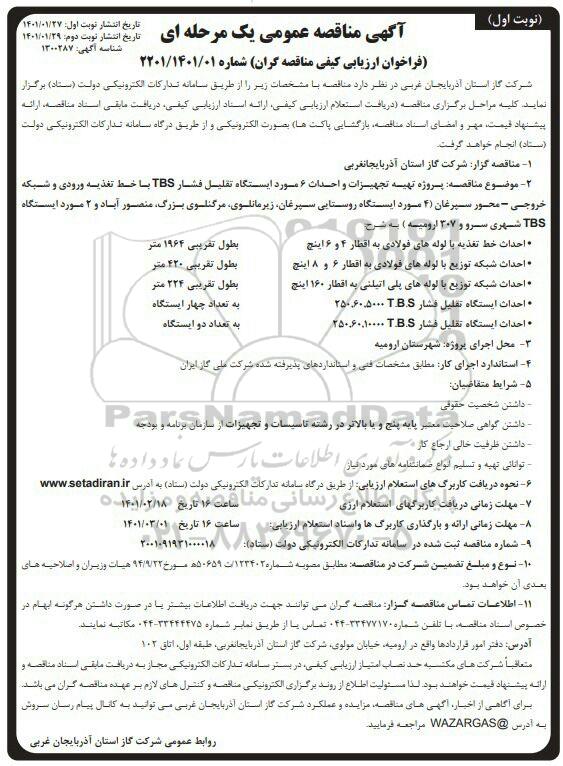 (نوبت اول)
تاریخ انتشار نوبت اول: ۱۴۰۱/۰۱/۲۷
تاریخ انتشار نوبت دوم: ۱۴۰۱/۰۱/۲۹
شناسه آگهی: ۱۳۰۰۲۸۷
آگهی مناقصه عمومی یک مرحله ای
(فراخوان ارزیابی کیفی مناقصه گران) شماره ۲۲۰۱/۱۴۰۱/۰۱
شرکت گاز استان آذربایجان غربی در نظر دارد مناقصه با مشخصات زیر را از طریق سامانه تدارکات الکترونیکی دولت (ستاد) برگزار
نماید. کلیه مراحل برگزاری مناقصه (دریافت استعلام ارزیابی کیفی، ارائه اسناد ارزیابی کیفی، دریافت مابقی اسناد مناقصه، ارائه
پیشنهاد قیمت، مهر و امضای اسناد مناقصه، بازگشایی پاکت ها) بصورت الکترونیکی و از طریق درگاه سامانه تدارکات الکترونیکی دولت
(ستاد) انجام خواهد گرفت.
۱- مناقصه گزار: شرکت گاز استان آذربایجانغربی
۲- موضوع مناقصه: پروژه تهیه تجهیزات و احداث ۶ مورد ایستگاه تقلیل فشار TBS با خط تغذیه ورودی و شبکه
خروجی – محور سپرغان (۴ مورد ایستگاه روستایی سپرغان، زیرمانلوی، مرگنلوی بزرگ، منصور آباد و ۲ مورد ایستگاه
TBS شهری سرو و ۳۰۷ ارومیه ) به شرح:
• احداث خط تغذیه با لوله های فولادی به اقطار ۴ و ۶ اینچ بطول تقریبی ۱۹۶۴ متر
• احداث شبکه توزیع با لوله های فولادی به اقطار ۶ و ۸ اینچ بطول تقریبی ۴۲۰ متر
• احداث شبکه توزیع با لوله های پلی اتیلنی به اقطار ۱۶۰ اینچ بطول تقریبی ۲۲۴ متر
• احداث ایستگاه تقلیل فشار T.B.S ۲۵۰.۶۰.۵۰۰۰ به تعداد چهار ایستگاه
• احداث ایستگاه تقلیل فشار T.B.S ۲۵۰.۶۰.۱۰۰۰۰ به تعداد دو ایستگاه
۳- محل اجرای پروژه: شهرستان ارومیه
۴- استاندارد اجرای کار: مطابق مشخصات فنی و استانداردهای پذیرفته شده شرکت ملی گاز ایران
۵- شرایط متقاضیان:
- داشتن شخصیت حقوقی
- داشتن گواهی صلاحیت معتبر پایه پنج و یا بالاتر در رشته تاسیسات و تجهیزات از سازمان برنامه و بودجه
- داشتن ظرفیت خالی ارجاع کار
- توانائی تهیه و تسلیم انواع ضمانتنامه های مورد نیاز
۶- نحوه دریافت کاربرگ های استعلام ارزیابی: از طریق درگاه سامانه تدارکات الکترونیکی دولت (ستاد) به آدرس www.setadiran.ir
۷- مهلت زمانی دریافت کاربرگهای استعلام ارزی ساعت ۱۶ تاریخ ۱۴۰۱/۰۲/۱۸
۸- مهلت زمانی ارائه و بارگذاری کاربرگ ها واسناد استعلام ارزیابی: ساعت ۱۶ تاریخ ۱۴۰۱/۰۳/۰۱
۹- شماره مناقصه ثبت شده در سامانه تدارکات الکترونیکی دولت (ستاد): ۲۰۰۱۰۹۱۹۳۱۰۰۰۰۱۸
۱۰- نوع و مبلغ تضمین شرکت در مناقصه: مطابق مصوبه شماره ۱۲۳۴۰۲/ت ۵۰۶۵۹ه مورخ ۹۴/۹/۲۲ هیات وزیران و اصلاحیه های
بعدی آن خواهد بود.
۱۱- اطلاعات تماس مناقصه گزار: مناقصه گران می توانند جهت دریافت اطلاعات بیشتر یا در صورت داشتن هرگونه ابهام در
خصوص اسناد مناقصه، با تلفن شماره ۳۳۴۷۷۱۷۰-۰۴۴ تماس یا از طریق نمابر شماره ۳۳۴۴۴۴۷۵-۰۴۴ مکاتبه نمایند.
آدرس: دفتر امور قراردادها واقع در ارومیه، خیابان مولوی، شرکت گاز استان آذربایجانغربی، طبقه اول، اتاق ۱۰۲
متعاقباً شرکت های مکتسبه حد نصاب امتیاز ارزیابی کیفی، در بستر سامانه تدارکات الکترونیکی مجاز به دریافت مابقی اسناد مناقصه و
ارائه پیشنهاد قیمت خواهند بود. لذا مسئولیت اطلاع از روند برگزاری الکترونیکی مناقصه و کنترل های لازم بر عهده مناقصه گران می باشد.
برای آگاهی از اخبار، آگهی های مناقصه، مزایده و عملکرد شرکت گاز استان آذربایجان غربی می توانید به کانال پیام رسان سروش
به آدرس @WAZARGAS مراجعه فرمایید.
روابط عمومی شرکت گاز استان آذربایجان غربی
ParsNamadData
پایگاه اطلاع رسانی مناقصه و مزایده
۰۲۱-۸۸۳۴۹۶۷۰-۵